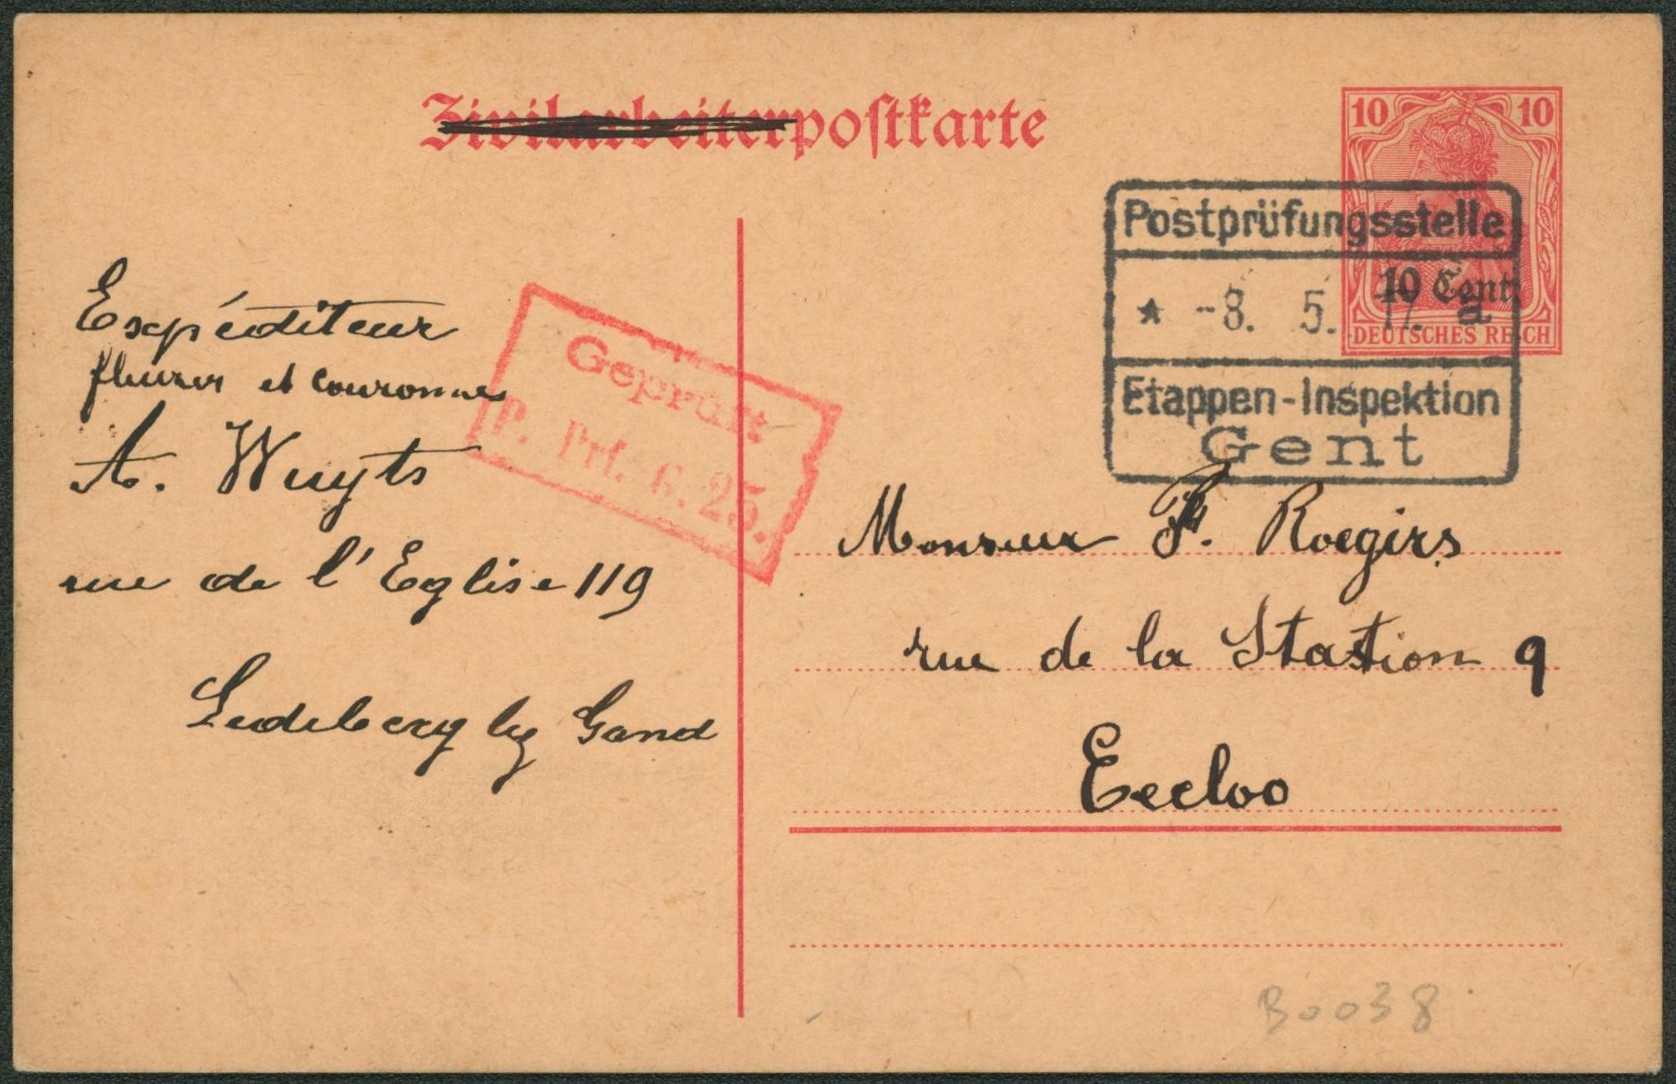 Zivilarbeiterpostkarte
10 10
10 Cent.
DEUTSCHES REICH
Postprüfungsstelle
* -8. 5. 17. a
Etappen-Inspektion
Gent
Geprüft
P. Prf. G. 25.
Expéditeur
fleurs et couronnes
A. Wuyts
rue de l'Eglise 119
Ledeberg lez Gand
Monsieur F. Roegiers
rue de la Station 9
Eecloo
B0038